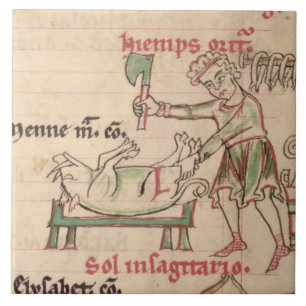 hiemps orit̄.
henne m̄. cō.
Sol in sagittario.
Elysabet. cō.